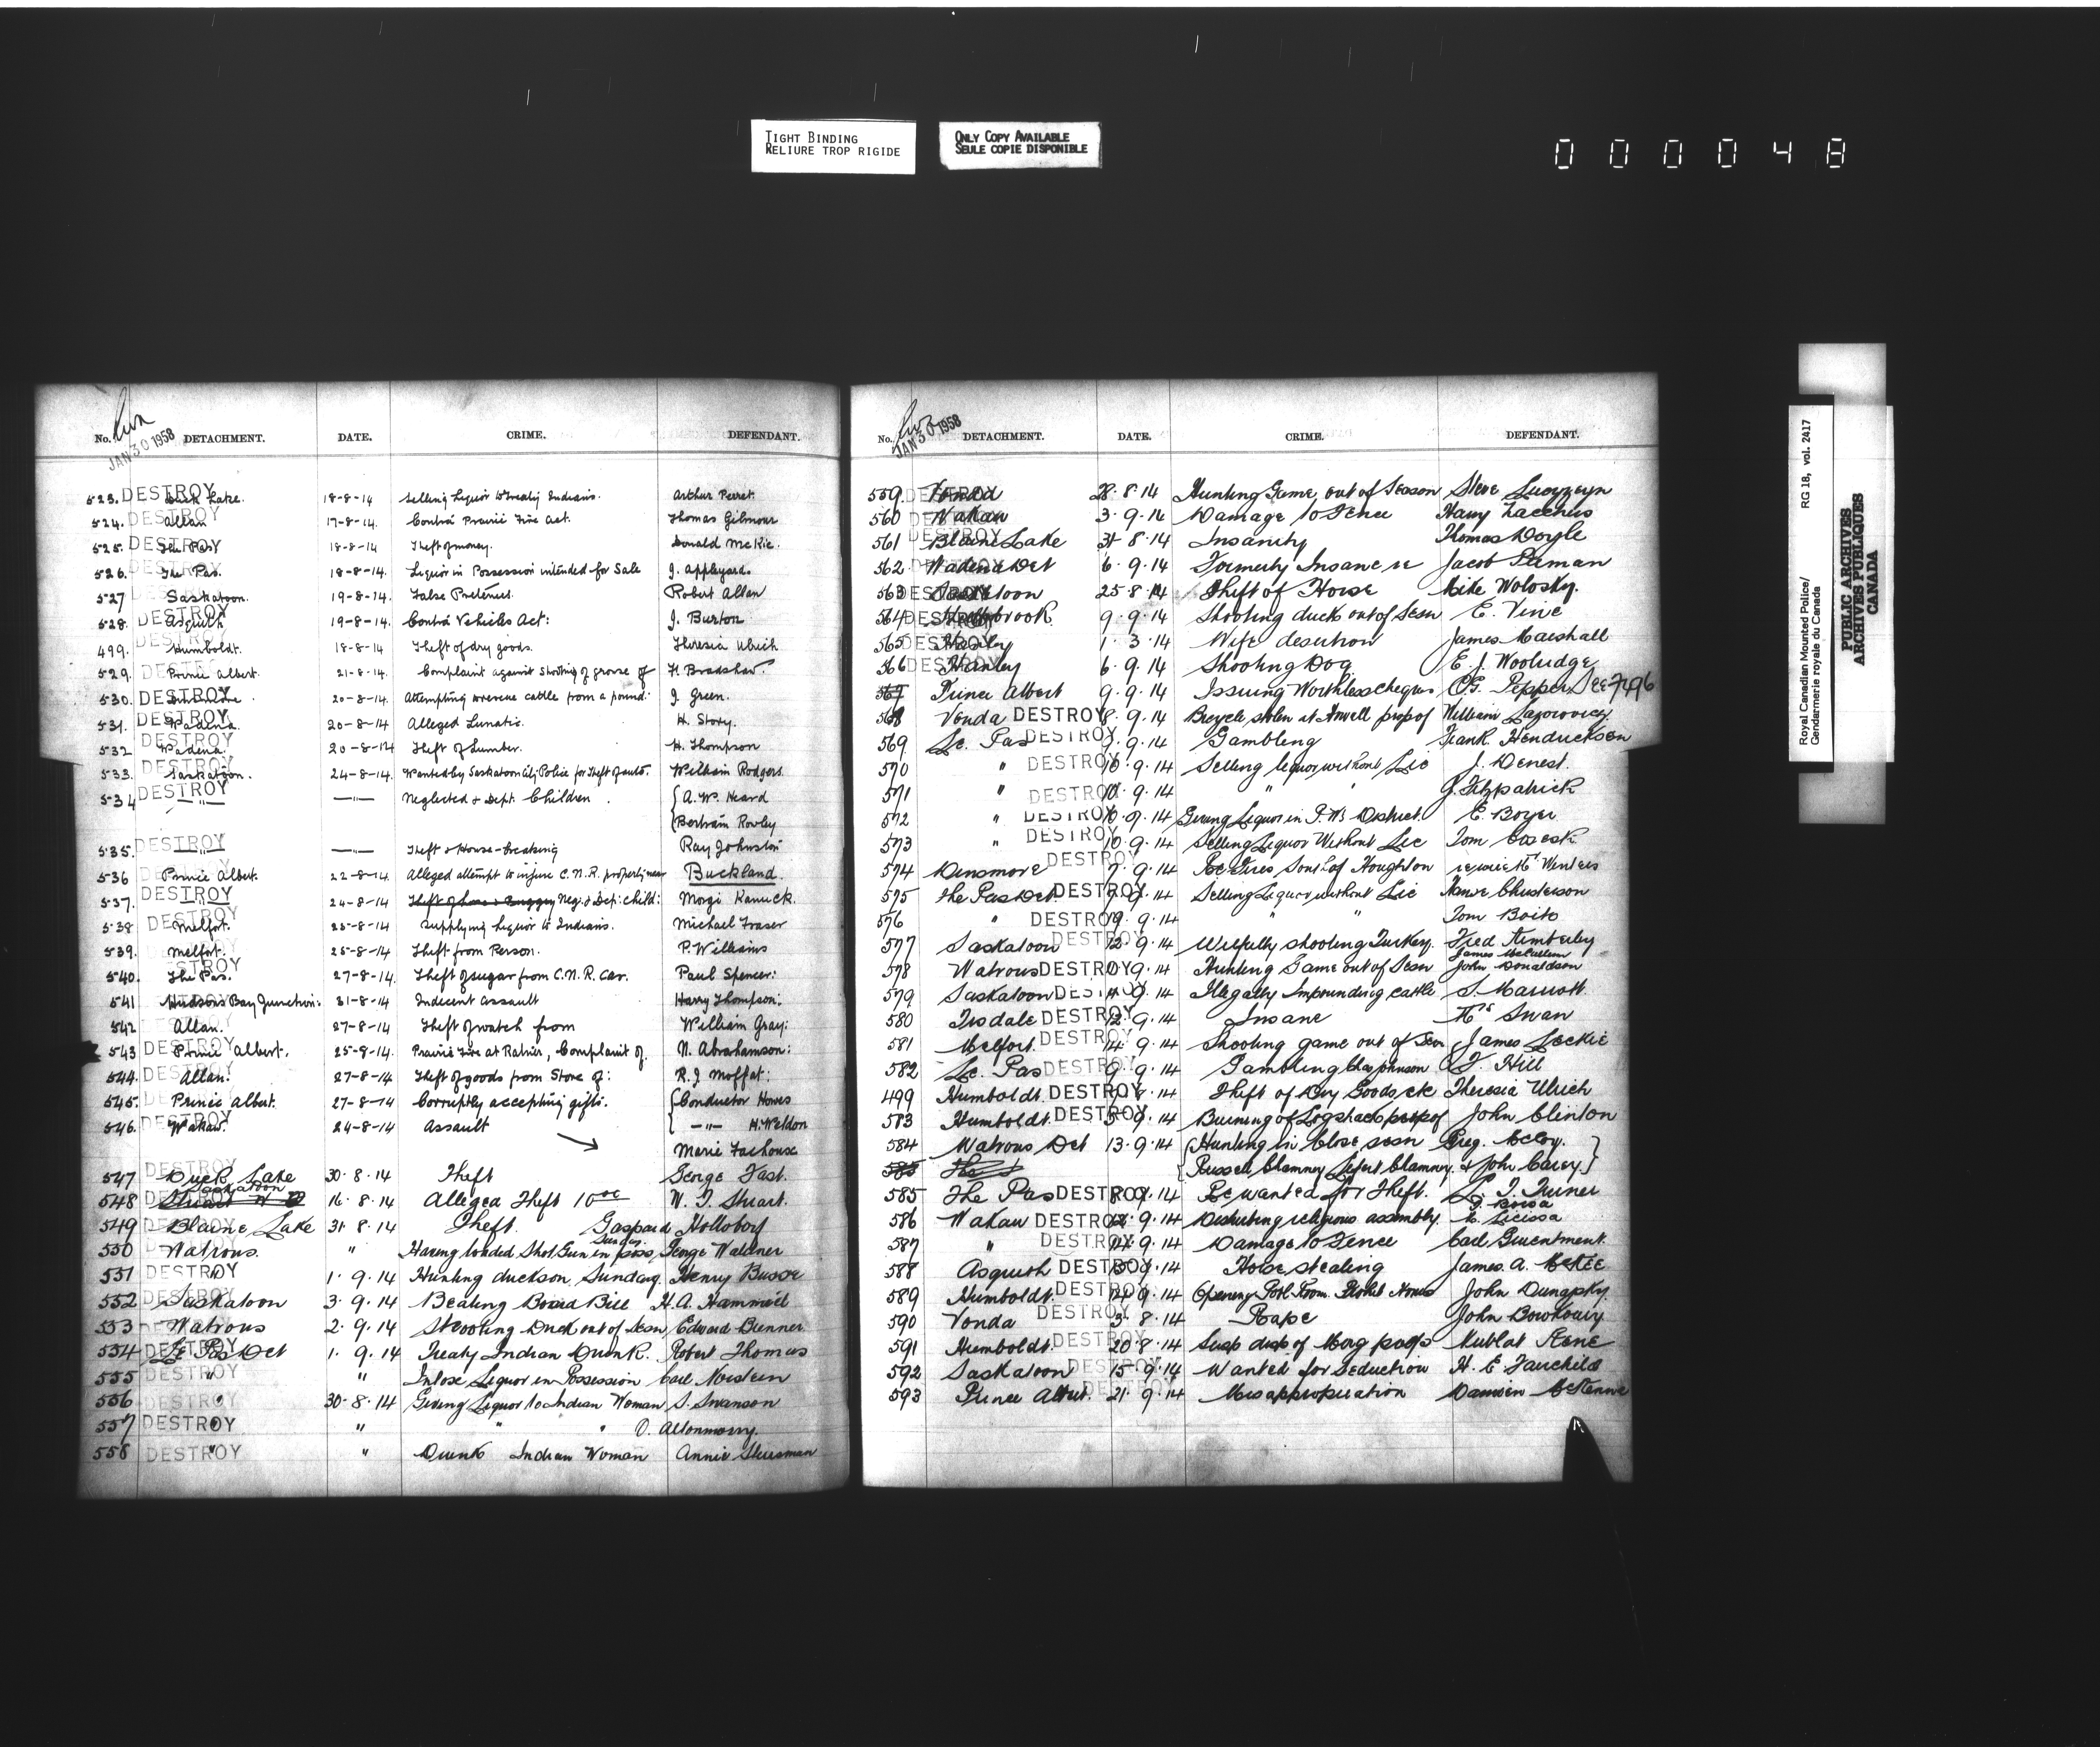 TIGHT BINDING
RELIURE TROP RIGIDE
ONLY COPY AVAILABLE
SEULE COPIE DISPONIBLE
000048
Royal Canadian Mounted Police/ RG 18, vol. 2417
Gendarmerie royale du Canada
PUBLIC ARCHIVES
ARCHIVES PUBLIQUES
CANADA
JAN 30 1958
No. DETACHMENT. DATE. CRIME. DEFENDANT.
523. DESTROY Duck Lake. 18-8-14 Selling Liquor to Treaty Indians. Arthur Perret.
524. DESTROY Allan 17-8-14. Contra Prairie Fire Act. Thomas Gilmour
525. DESTROY The Pas 18-8-14 Theft of money. Donald McKie.
526. DESTROY The Pas. 18-8-14. Liquor in Possession intended for Sale J. Appleyard.
527 DESTROY Saskatoon. 19-8-14. False Pretences. Robert Allan
528. DESTROY Asquith 19-8-14. Contra Vehicles Act: J. Burton
499. DESTROY Humboldt. 18-8-14 Theft of dry goods. Theresia Ulrich
529. DESTROY Prince Albert. 21-8-14. Complaint against Shooting of grouse of H. Bradshaw.
530. DESTROY Dinsmore. 20-8-14. Attempting to rescue cattle from a pound. J. Green.
531. DESTROY Wadena. 20-8-14 Alleged Lunatic. H. Story.
532 DESTROY Wadena. 20-8-14 Theft of Lumber. H. Thompson
533. DESTROY Saskatoon. 24-8-14. Wanted by Saskatoon City Police for Theft of auto. William Rodgers.
534 DESTROY —"— —"— Neglected & Dept. Children. { A.W. Heard
{ Bertram Rowley
535. DESTROY —"— —"— Theft & House-breaking Ray Johnston
536 DESTROY Prince Albert. 22-8-14. Alleged attempt to injure C.N.R. property near Buckland.
537. DESTROY —"— 24-8-14 Neg. & Dep: child: Morgi Kanuck.
538 DESTROY Melfort. 25-8-14 Supplying Liquor to Indians. Michael Fraser
539. DESTROY Melfort. 25-8-14 Theft from Person. P. Williams
540. DESTROY The Pas. 27-8-14. Theft of sugar from C.N.R. Car. Paul Spencer:
541 DESTROY Hudson's Bay Junction: 31-8-14 Indecent Assault Harry Thompson.
542 DESTROY Allan. 27-8-14 Theft of watch from William Gray:
543 DESTROY Prince Albert. 25-8-14. Prairie Fire at Ratner, Complaint of. N. Abrahamson:
544. DESTROY Allan. 27-8-14 Theft of goods from Store of: R.J. Moffat:
545. DESTROY Prince Albert. 27-8-14 Corruptly accepting gifts. { Conductor Howes
546. DESTROY Wakaw. 24-8-14 Assault { —"— H. Weldon
Marie Lachouse
547 DESTROY Duck Lake 30.8.14 Theft George Fast.
548 DESTROY Saskatoon 16.8.14 Alleged Theft 10.00 W. J. Stuart.
549 DESTROY Blaine Lake 31.8.14 Theft. Gaspard Holloboff
550 DESTROY Watrous. " Having loaded Shot Gun in poss, Sunday George Waldner
551 DESTROY " 1.9.14 Hunting ducks on Sunday. Henry Busse
552 DESTROY Saskatoon 3.9.14 Beating Board Bill H.A. Hammell
553 DESTROY Watrous 2.9.14 Shooting Duck out of Sesn Edward Brenner
554 DESTROY Le Pas Det 1.9.14 Treaty Indian Drunk. Robert Thomas
555 DESTROY " " Intox Liquor in Possession Carl Norsteen
556 DESTROY " 30.8.14 Giving Liquor to Indian Woman S. Swanson
557 DESTROY " " " "
558 DESTROY " " Drunk Indian Woman Annie
JAN 30 1958
No. DETACHMENT. DATE. CRIME. DEFENDANT.
559. DESTROY Vonda 28.8.14 Hunting Game out of Season Steve
560 DESTROY Wakaw 3.9.14 Damage to Fence Harry
561 DESTROY Blaine Lake 31.8.14 Insanity Thomas Doyle
562 DESTROY Wadena Det 6.9.14 Formerly Insane re Jacob
563 DESTROY Saskatoon 25.8.14 Theft of Horse Mike Wolosky.
564 DESTROY 9.9.14 Shooting duck out of Sesn E. Vine
565 DESTROY Hanley 1.3.14 Wife desertion James Marshall
566 DESTROY Hanley 6.9.14 Shooting Dog E. J. Woolridge
567 Prince Albert 9.9.14 Issuing Worthless cheques O.G. Pepper See 7496
568 Vonda DESTROY 8.9.14 Bicycle stolen at Howell prop of William
569 Le Pas DESTROY 9.9.14 Gambling Frank Hendrickson
570 " DESTROY 10.9.14 Selling liquor without Lic J. Denest.
571 " DESTROY 10.9.14 " " J. Fitzpatrick
572 " DESTROY 10.9.14 Giving Liquor in P.W's District. E. Boyer
573 " DESTROY 10.9.14 Selling Liquor Without Lic Tom
574 Dinsmore DESTROY 7.9.14 Re Fires South of Houghton Winters
575 The Pas Det. DESTROY 9.9.14 Selling Liquor without Lic
576 " DESTROY 9.14 " " Tom Boito
577 Saskatoon DESTROY 12.9.14 Wilfully shooting Turkey. Fred Kimberley
578 Watrous DESTROY 9.14 Hunting Game out of Sesn James McCallum
John Donaldson
579 Saskatoon DESTROY 9.14 Illegally Impounding cattle S. Marriott.
580 Tisdale DESTROY 12.9.14 Insane Mrs Swan
581 Melfort. DESTROY 14.9.14 Shooting game out of Sesn James Leckie
582 Le Pas DESTROY 9.9.14 Gambling Chas Johnson J. Hill
499 Humboldt. DESTROY 8.14 Theft of Dry Goods, etc Theresia Ulrich
583 Humboldt. DESTROY 9.14 Burning of Log shack prop of John Clinton
584 Watrous Det 13.9.14 { Hunting in Close sesn Greg. McCoy. }
{ Russell Chamney Chamney, & John Carey }
585 The Pas DESTROY 9.14 Re wanted for Theft. L. J. Turner
586 Wakaw DESTROY 9.14 Disturbing religious assembly.
587 " DESTROY 9.14 Damage to Fence Carl
588 Asquith DESTROY 9.14 Horse stealing James A. McKee
589 Humboldt. DESTROY 9.14 Opening Pool Room Prohibt Hours John
590 Vonda DESTROY 3.8.14 Rape John
591 Humboldt. DESTROY 20.8.14 Susp disp of Morg prop
592 Saskatoon DESTROY 15.9.14 Wanted for Seduction H. E. Fairchild
593 Prince Albert. DESTROY 21.9.14 Misappropriation